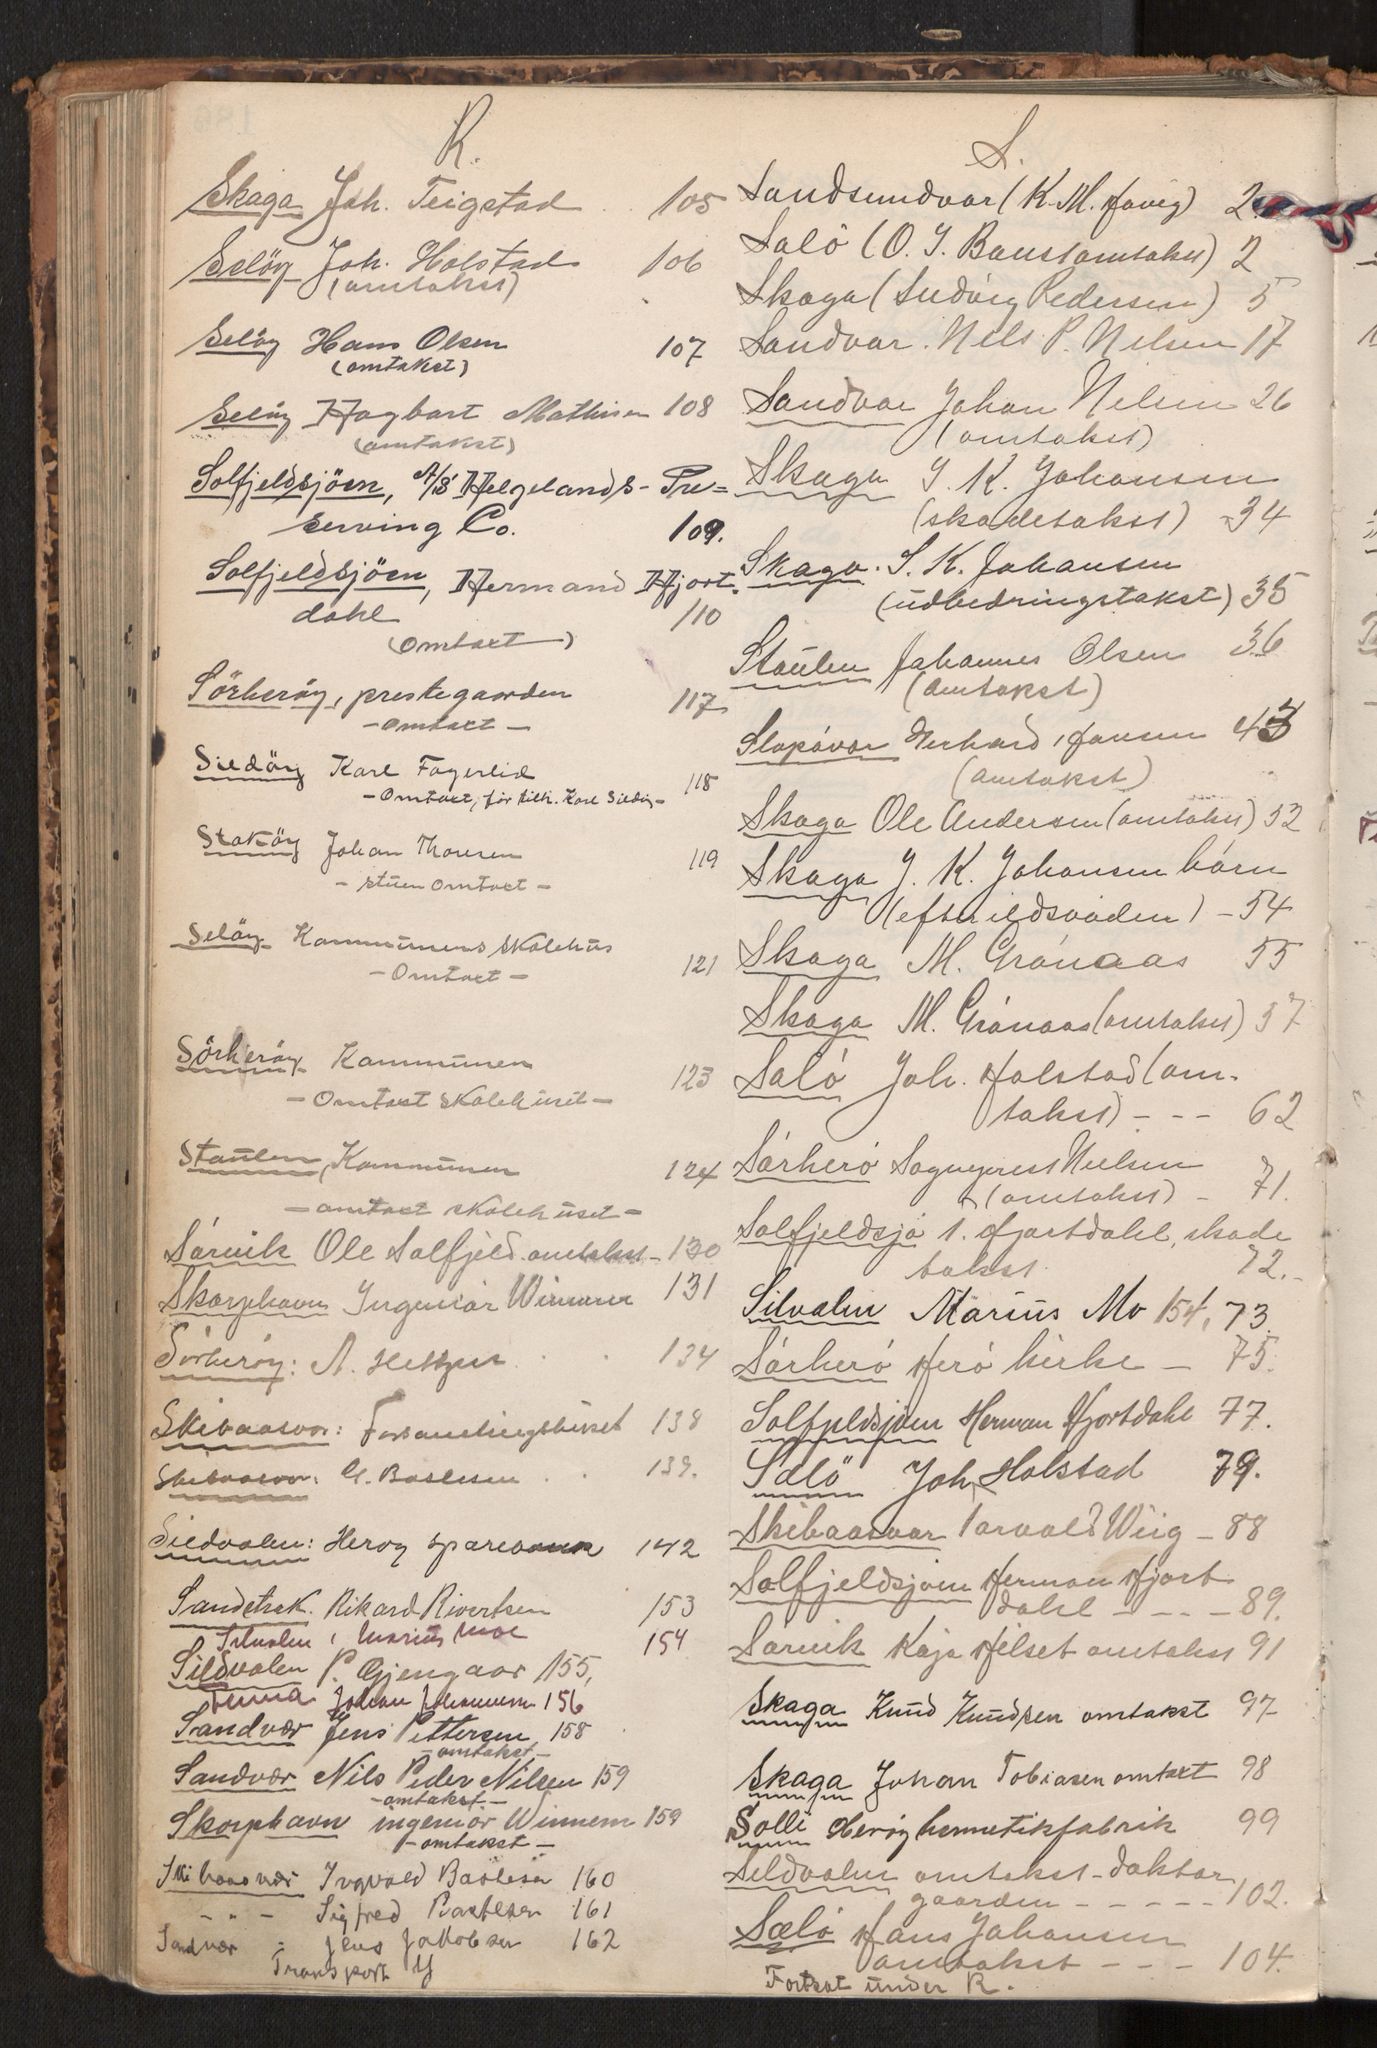 R.
Skaga Joh. Teigstad 105
Seløy Joh. Holstad 106
(omtakst)
Seløy Hans Olsen 107
(omtakst)
Seløy Hagbart Mathisen 108
(omtakst)
Solfjeldsjöen, A/S Helgelands- Pre=
serving Co. 109.
Solfjeldsjöen, Hermand Hjort
dahl 110
(Omtaxt)
Sörheröy, prestegaarden 117
- Omtaxt -
Sildöy Karl Fagerlid 118
- Omtaxt, før tilh. Karl Sildöy -
Stoköy Johan Thoresen 119
- stuen Omtaxt -
Selöy Kommunens Skolehus 121
- Omtaxt -
Sörheröy Kommunen 123
- Omtaxt Skolehuset -
Staulen, Kommunen 124
- omtaxt skolehuset -
Sørvik Ole Solfjeld omtakst - 130
Skorphavn Ingeniør Winnem 131
Sörheröy: A. 134
Skibaasvær: Forsamlingshuset 138
Skibaasvær: Baslesen 139.
Sildvalen: Herøy sparebank 142
Sandstrak Rikard Rivertsen 153
Silvalen, Marius Moe 154
Sildvalen P. Gjengaar 155,
Tenna Johan Johannesen 156
Sandvær Jens Pettersen 158
- omtakst -
Sandvær Nils Peder Nilsen 159
- omtakst -
Skorphavn ingeniør Winnem 159
- omtakst -
Skibaasvær Ingvald Baslesen 160
- " - Sigfred Baslesen 161
Sandvær - Jens Jakobsen 162
Transport Y
S.
Sandsundvær (K. M. Høvig) 2
Salø (O. J. Baustamtakst) 2
Skaga (Ludvig Pedersen) 5
Sandvær. Nils P. Nilsen 17
Sandvær Johan Nilsen 26
(omtakst)
Skaga J. K. Johansen
(skadetakst) 34
Skaga. J. K. Johansen
(udbedringstakst) 35
Staulen Johannes Olsen 36
(omtakst)
Slapøvær Gerhard Hansen 43
(omtakst)
Skaga Ole Andersen (omtakst) 52
Skaga J. K. Johansen børn
(efter ildsvaaden) - 54
Skaga M. Grønaas 55
Skaga M. Grønaas (omtakst) 57
Salø Joh. Holstad (om-
takst) - - - 62
Sørherø Sogneprest Nielsen
(omtakst) - 71.
Solfjeldsjø H. Hjortdahl, skade
takst 72.-
Silvalen Marius Mo 154, 73
Sørherø Herø kirke - 75.
Solfjeldsjøen Herman Hjortdahl 77.
Sælö Joh. Holstad 79.
Skibaasvær Torvald Wiig - 88
Solfjeldsjøen Herman Hjort
dahl - - - - 89.
Sørvik Kaja Hilset omtakst 91
Skaga Knud Knudsen omtakst 97
Skaga Johan Tobiasen omtaxt 98
Solli Herøy hermetikfabrik 99
Sildvalen omtakst - doktor
gaarden - - - - - 102.
Sælø Hans Johansen
omtakst - - - 104.
Fortsat under R.